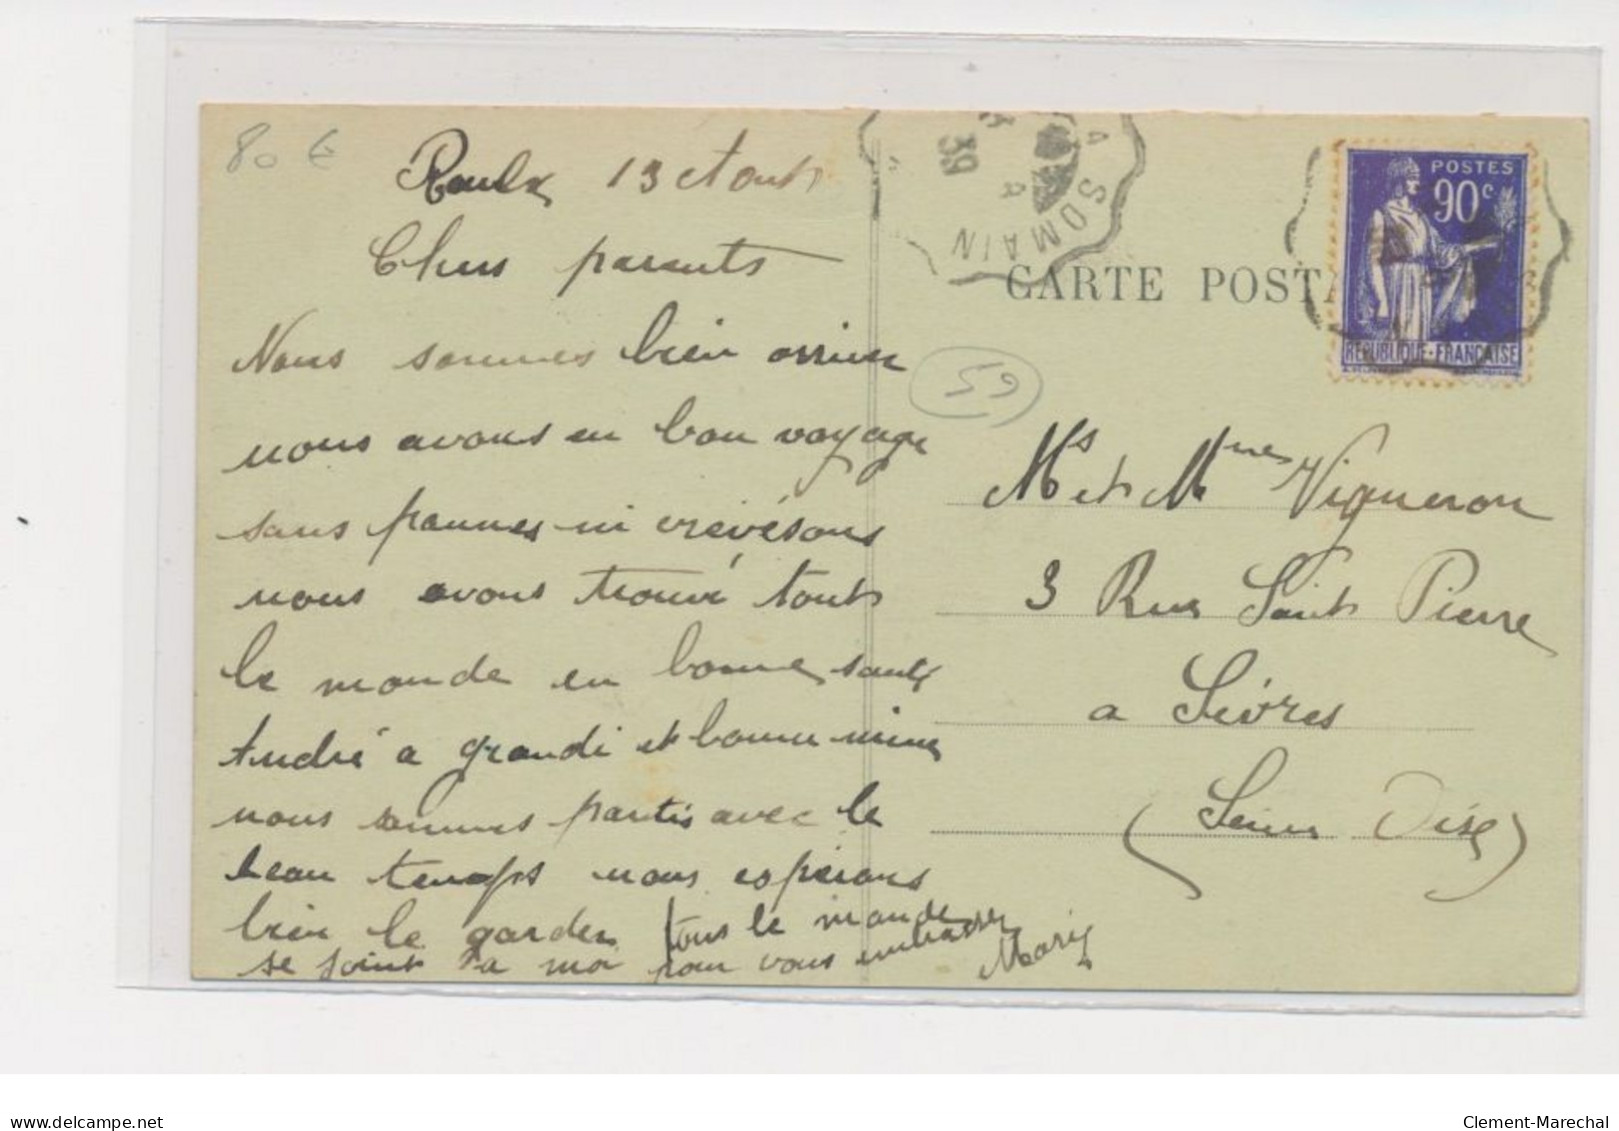 80 €
Roeulx 13 Aout
Chers parents
Nous sommes bien arrivés
nous avons eu bon voyage
sans pannes ni crevésons
nous avons trouvé tout
le monde en bonne santé
André a grandi et bonne mine
nous sommes partis avec le
beau temps nous espérons
bien le garder tous le monde
se joint a moi pour vous embrasser
Marie
A SOMAIN
39
CARTE POSTA
POSTES
90c
REPUBLIQUE·FRANÇAISE
59
Mr et Mmes Vigneron
3 Rue Saint Pierre
a Sèvres
(Seine Oise)
delcampe.net
Clement-Marechal